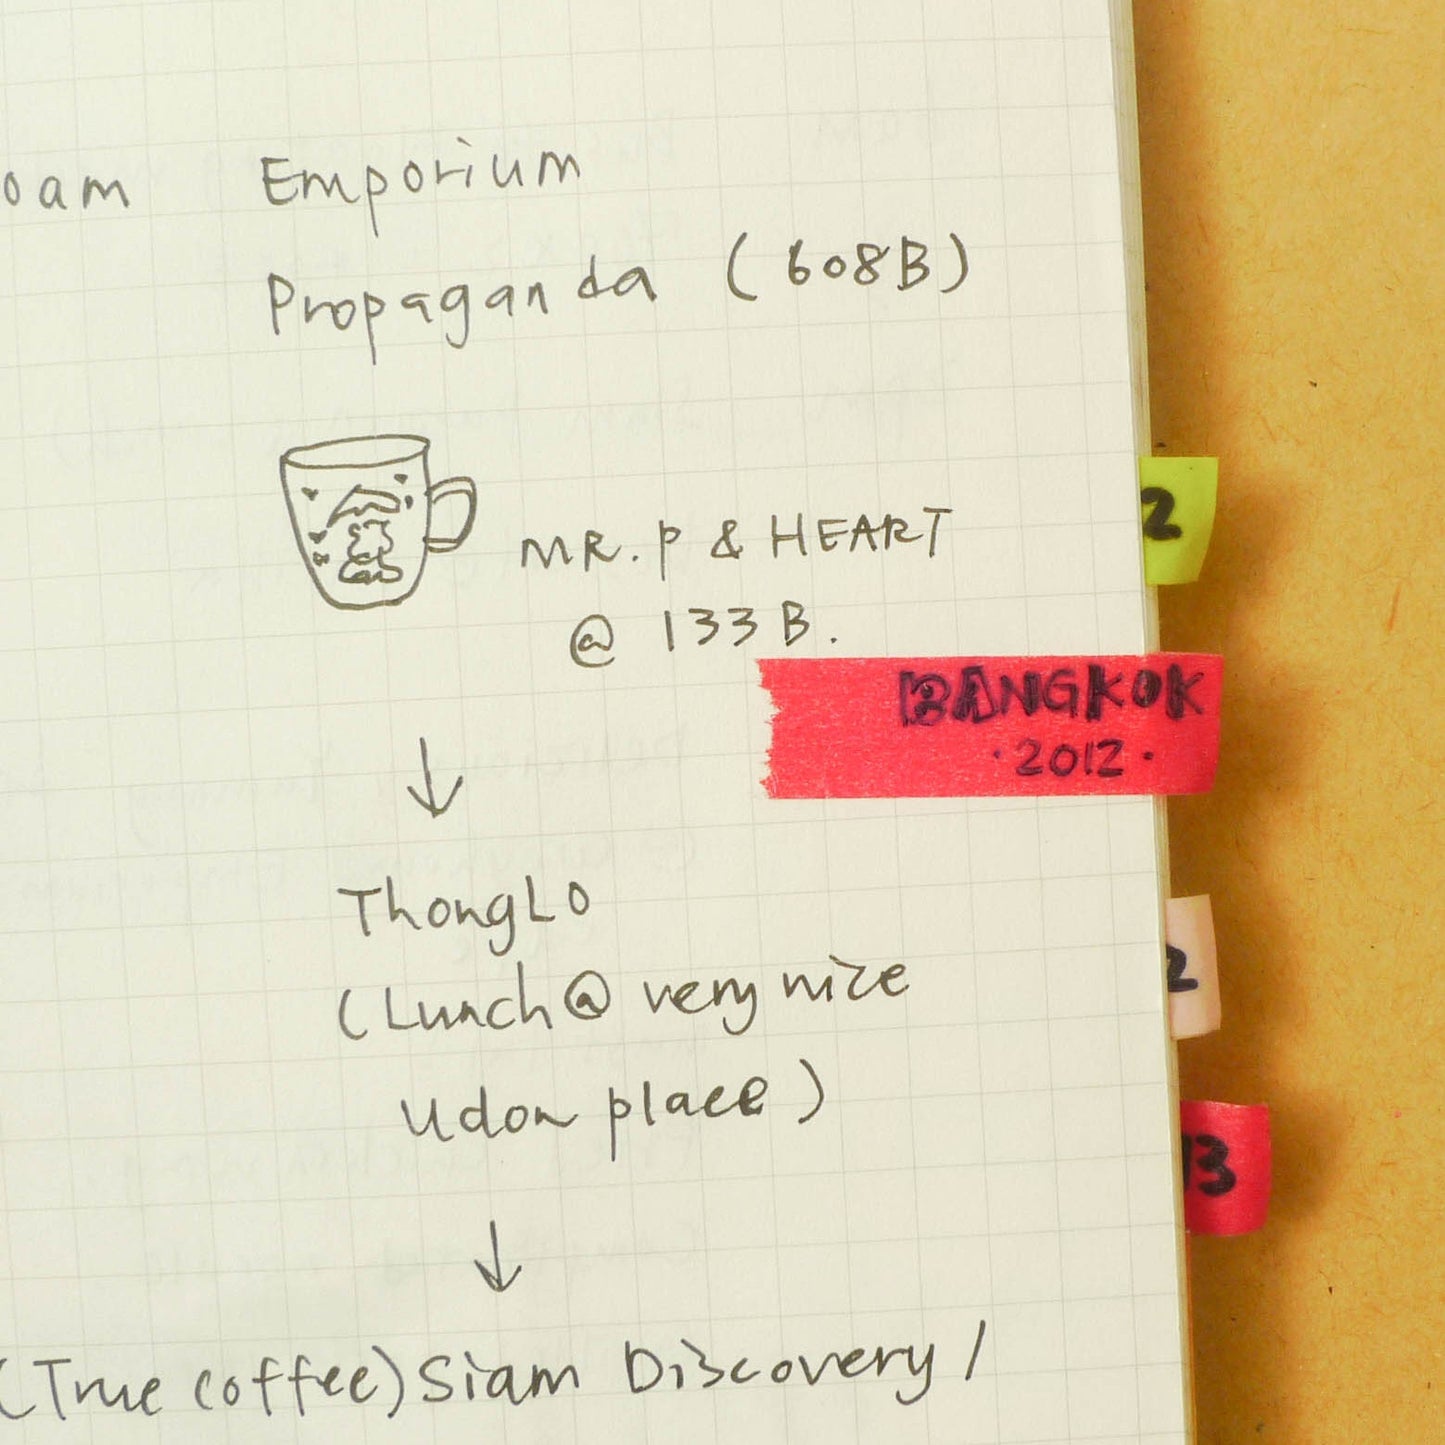 oam Emporium
Propaganda (608B)
MR. P & HEART
@ 133 B.
BANGKOK
· 2012 ·
ThongLo
(Lunch @ very nice
Udon place)
(True coffee) Siam Discovery /
2
2
13